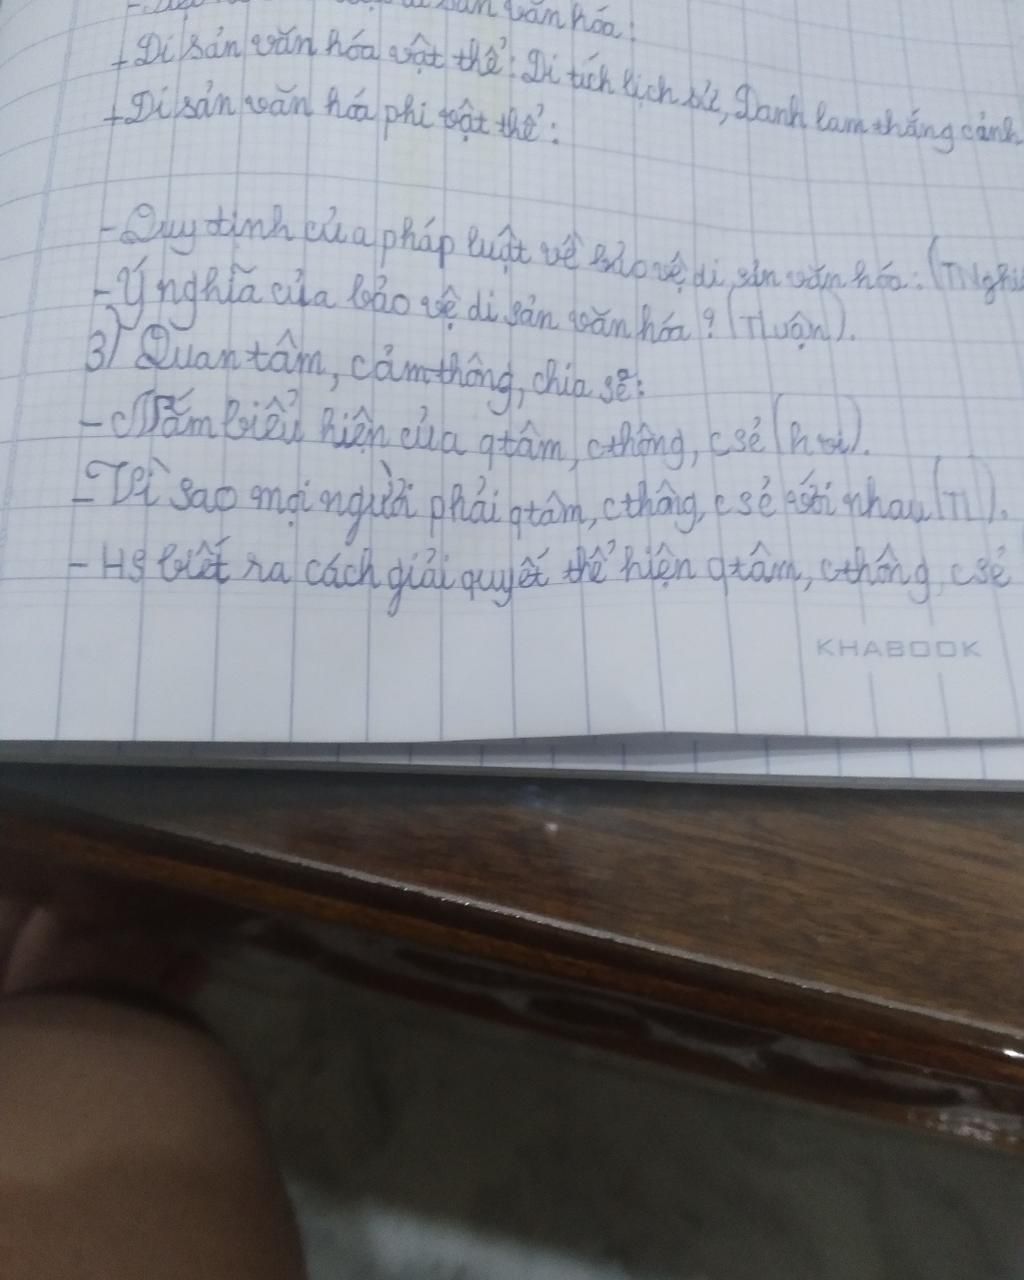 di sản văn hóa:
+ Di sản văn hóa vật thể: Di tích lịch sử, Danh lam thắng cảnh
+ Di sản văn hóa phi vật thể:
- Quy định của pháp luật về bảo vệ di sản văn hóa: (TNghi
- Ý nghĩa của bảo vệ di sản văn hóa? (Tluận).
3) Quan tâm, cảm thông, chia sẽ:
- Nắm biểu hiện của qtâm, cthông, c sẻ
- Vì sao mọi người phải qtâm, cthông, c sẻ với nhau (TL).
- HS biết ra cách giải quyết thể hiện qtâm, cthông, c sẻ
KHABOOK